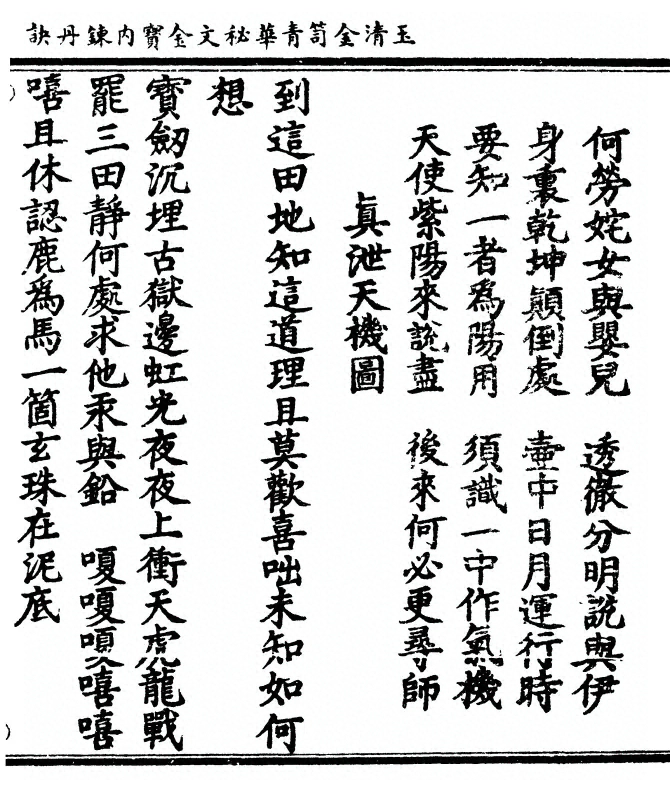 玉清金笥青華秘文金寶內鍊丹訣
何勞姹女與嬰兒　透徹分明說與伊
身裏乾坤顛倒處　壺中日月運行時
要知一者爲陽用　須識一中作氣機
天使紫陽來說盡　後來何必更尋師
眞泄天機圖
到這田地知這道理且莫歡喜咄未知如何
想
寶劒沉埋古獄邊虹光夜夜上衝天虎龍戰
罷三田靜何處求他汞與鉛　嗄嗄嗄嘻嘻
嘻且休認鹿爲馬一箇玄珠在泥底